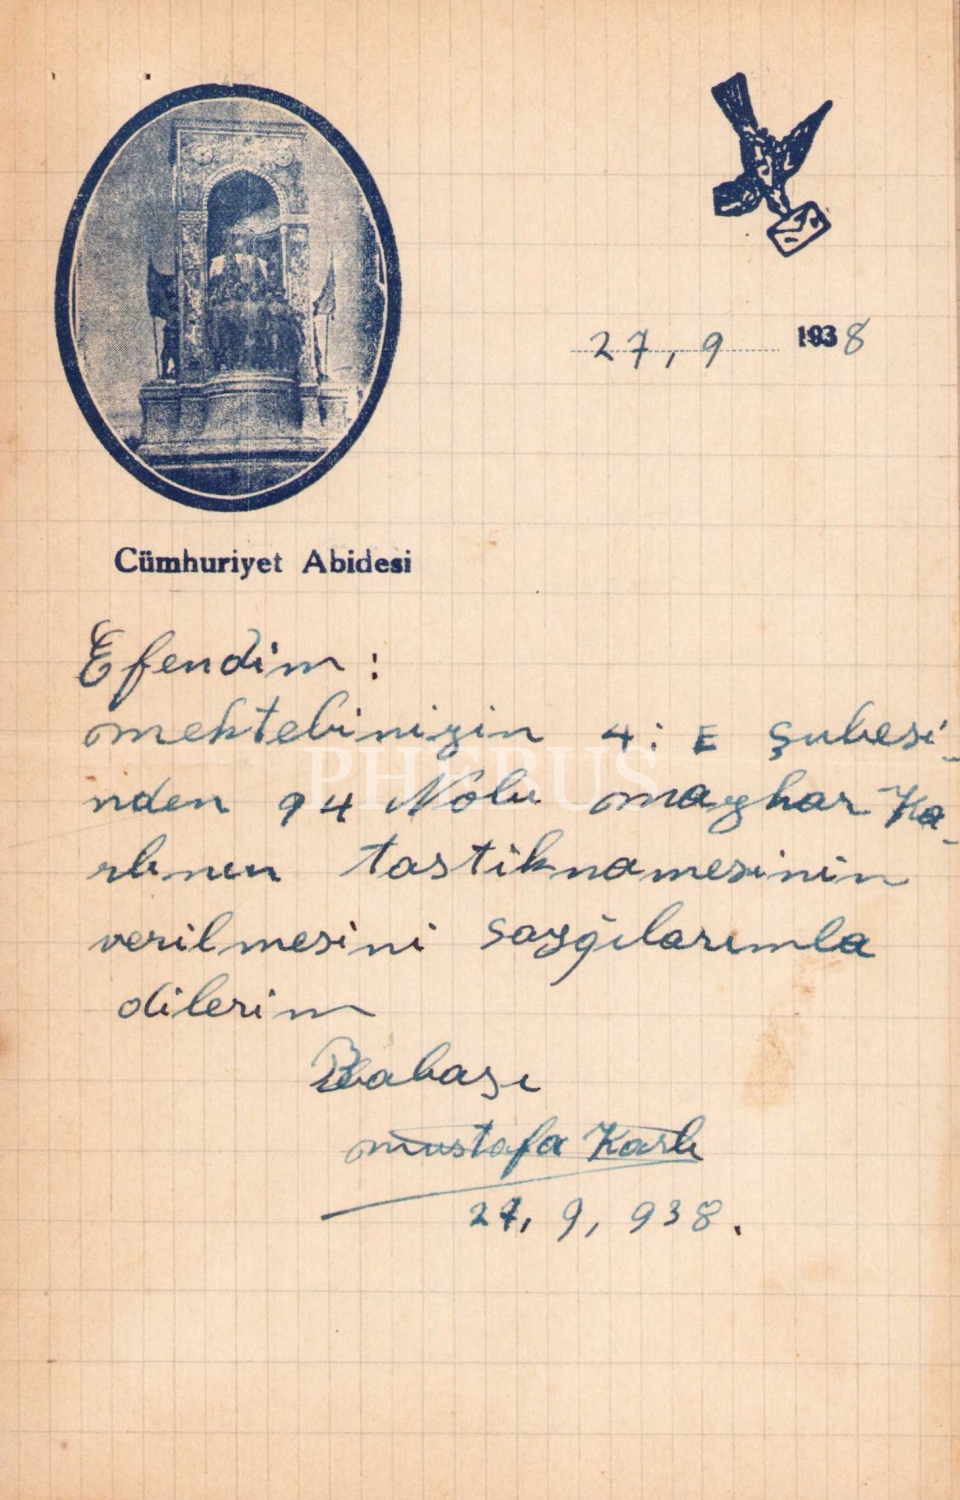 27, 9 1938
Cümhuriyet Abidesi
Efendim :
mektebinizin 4: E Şubesi-
nden 94 Nolu mazhar Ka-
rlının tastiknamesinin
verilmesini saygılarımla
dilerim
Babası
mustafa Karlı
27, 9, 938.
PHEBUS